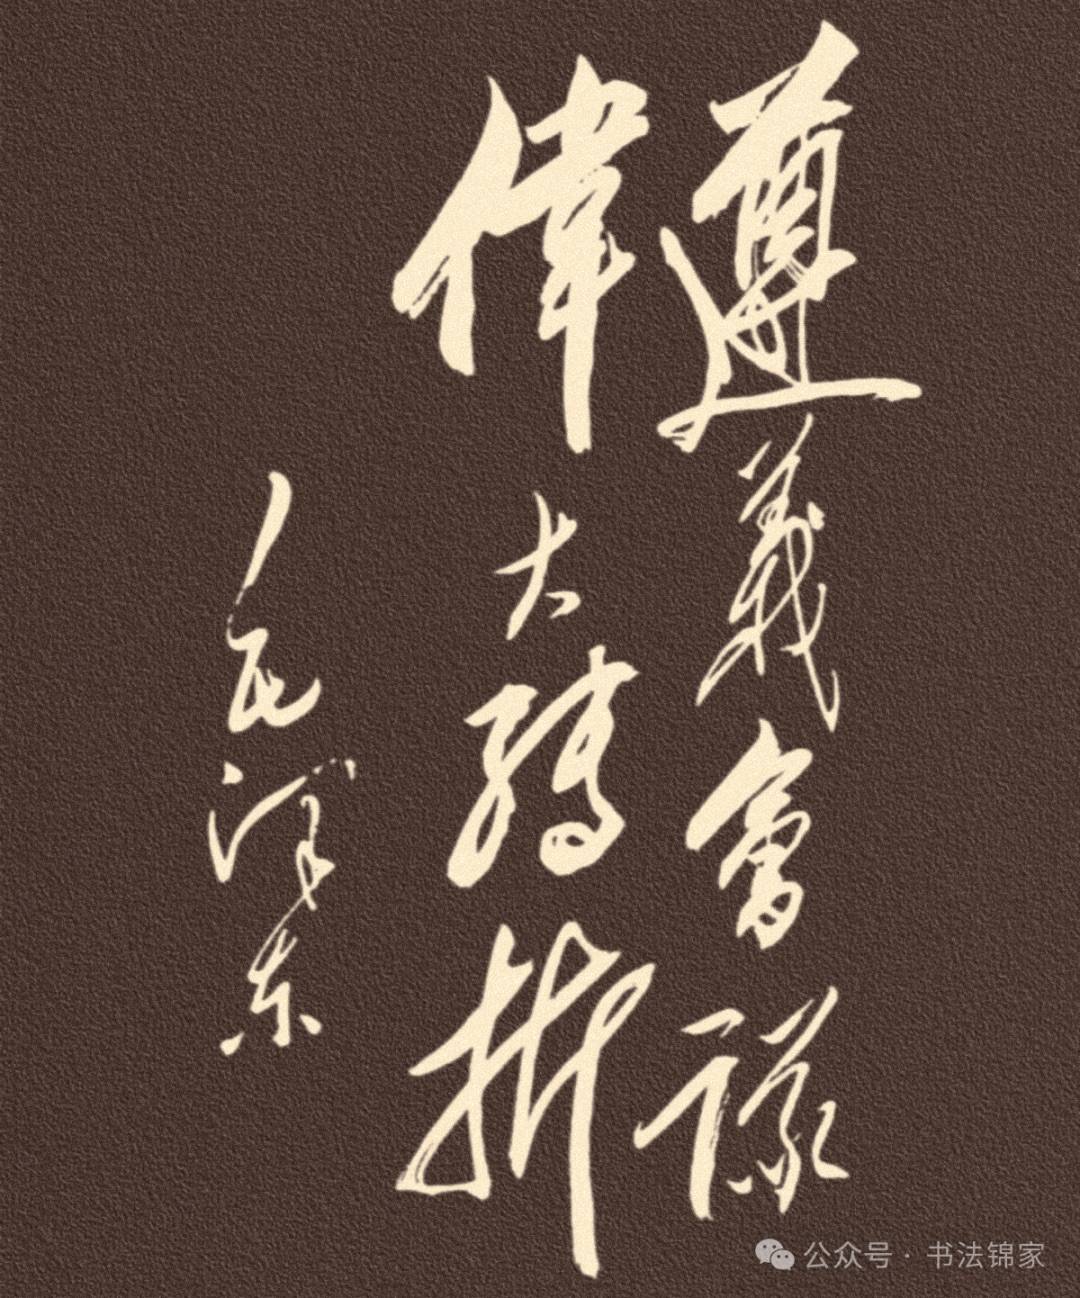 遵義會議
偉大轉折
毛澤東
公众号 · 书法锦家